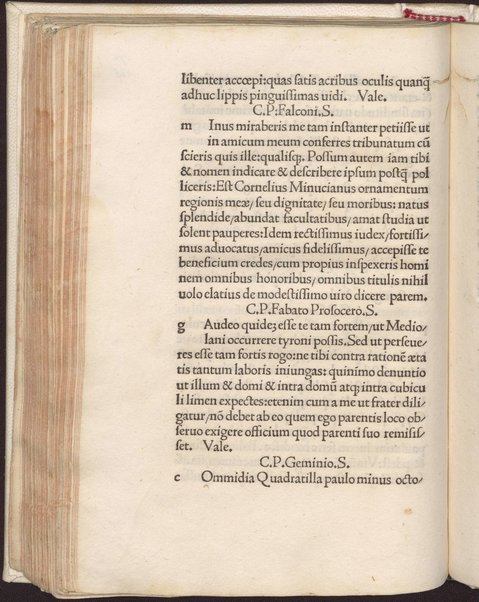 libenter accœpi:quas satis acribus oculis quanq̃
adhuc lippis pinguissimas uidi. Vale.
C.P:Falconi.S.
m Inus miraberis me tam instanter petiisse ut
in amicum meum conferres tribunatum cũ
scieris quis ille:qualisq;. Possum autem iam tibi
& nomen indicare & describere ipsum postq̃ pol
liceris:Est Cornelius Minucianus ornamentum
regionis meæ/seu dignitate/seu moribus: natus
splendide/abundat facultatibus/amat studia ut
solent pauperes:Idem rectissimus iudex/fortissi/
mus aduocatus/amicus fidelissimus/accepisse te
beneficium credes/cum propius inspexeris homi
nem omnibus honoribus/omnibus titulis nihil
uolo elatius de modestissimo uiro dicere parem.
C.P.Fabato Prosocero.S.
g Audeo quideȝ esse te tam fortem/ut Medio/
lani occurrere tyroni possis.Sed ut perseue/
res esse tam fortis rogo:ne tibi contra rationẽ æta
tis tantum laboris iniungas: quinimo denuntio
ut illum & domi & intra domũ atq; intra cubicu
li limen expectes:etenim cum a me ut frater dili/
gatur/nõ debet ab eo quem ego parentis loco ob/
seruo exigere officium quod parenti suo remisis/
set. Vale.
C.P.Geminio.S.
c Ommidia Quadratilla paulo minus octo/